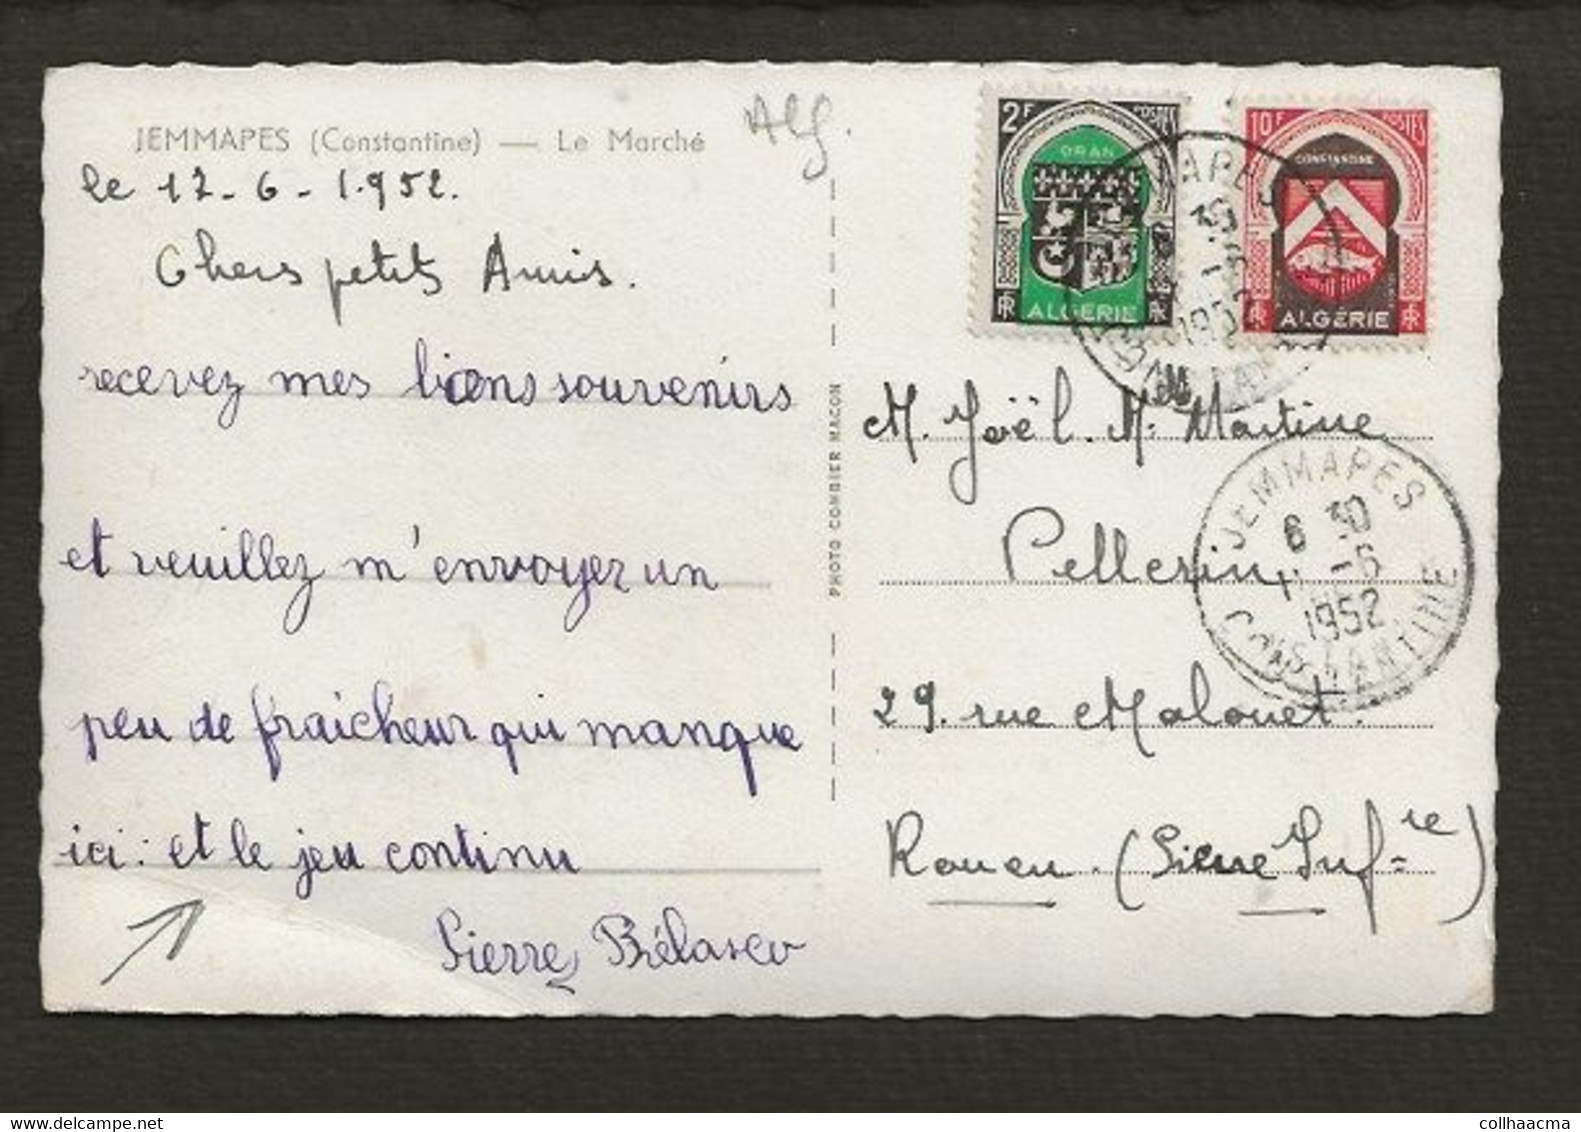 JEMMAPES (Constantine) — Le Marché
Alg.
le 12-6-1952.
Chers petits Amis.
recevez mes biens souvenirs
et veuillez m'envoyer un
peu de fraicheur qui manque
ici: et le jeu continu
Pierre Bélasco
PHOTO COMBIER MACON
2F POSTES
ORAN
RF ALGÉRIE RF
10F POSTES
CONSTANTINE
RF ALGÉRIE RF
1952
M. Joël. M. Martine
Pellerin
29. rue Malouet.
Rouen. (Seine Infre)
JEMMAPES
6 30
-6
1952
CONSTANTINE
collhaacma